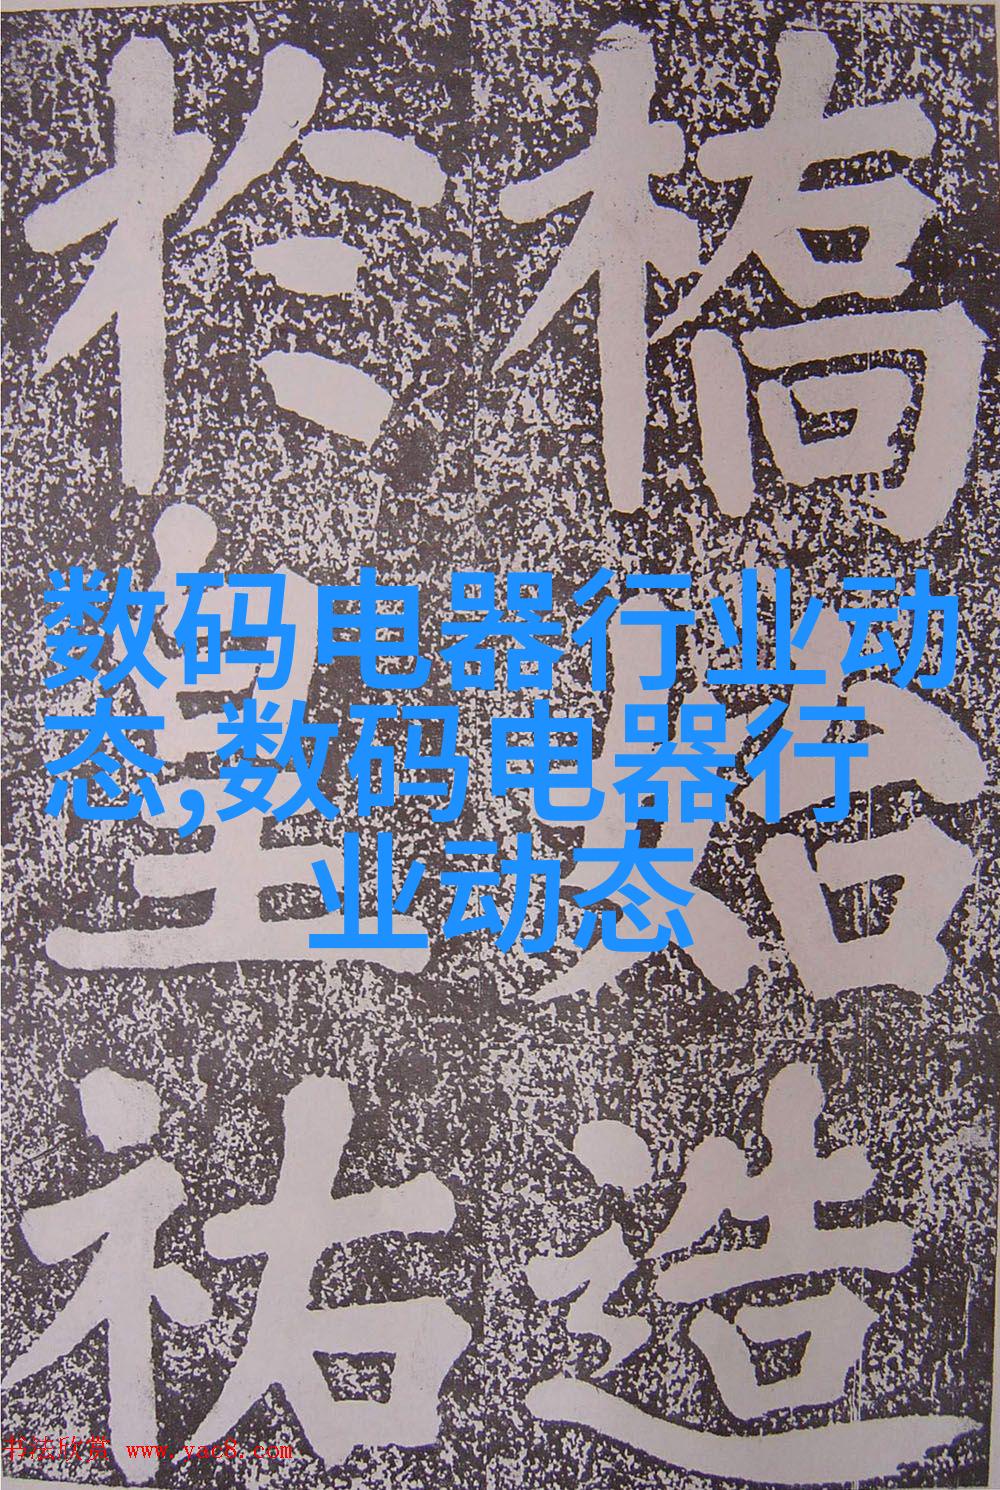 橋始造
於皇祐
数码电器行业动
态,数码电器行
业动态
书法欣赏 www.yac8.com